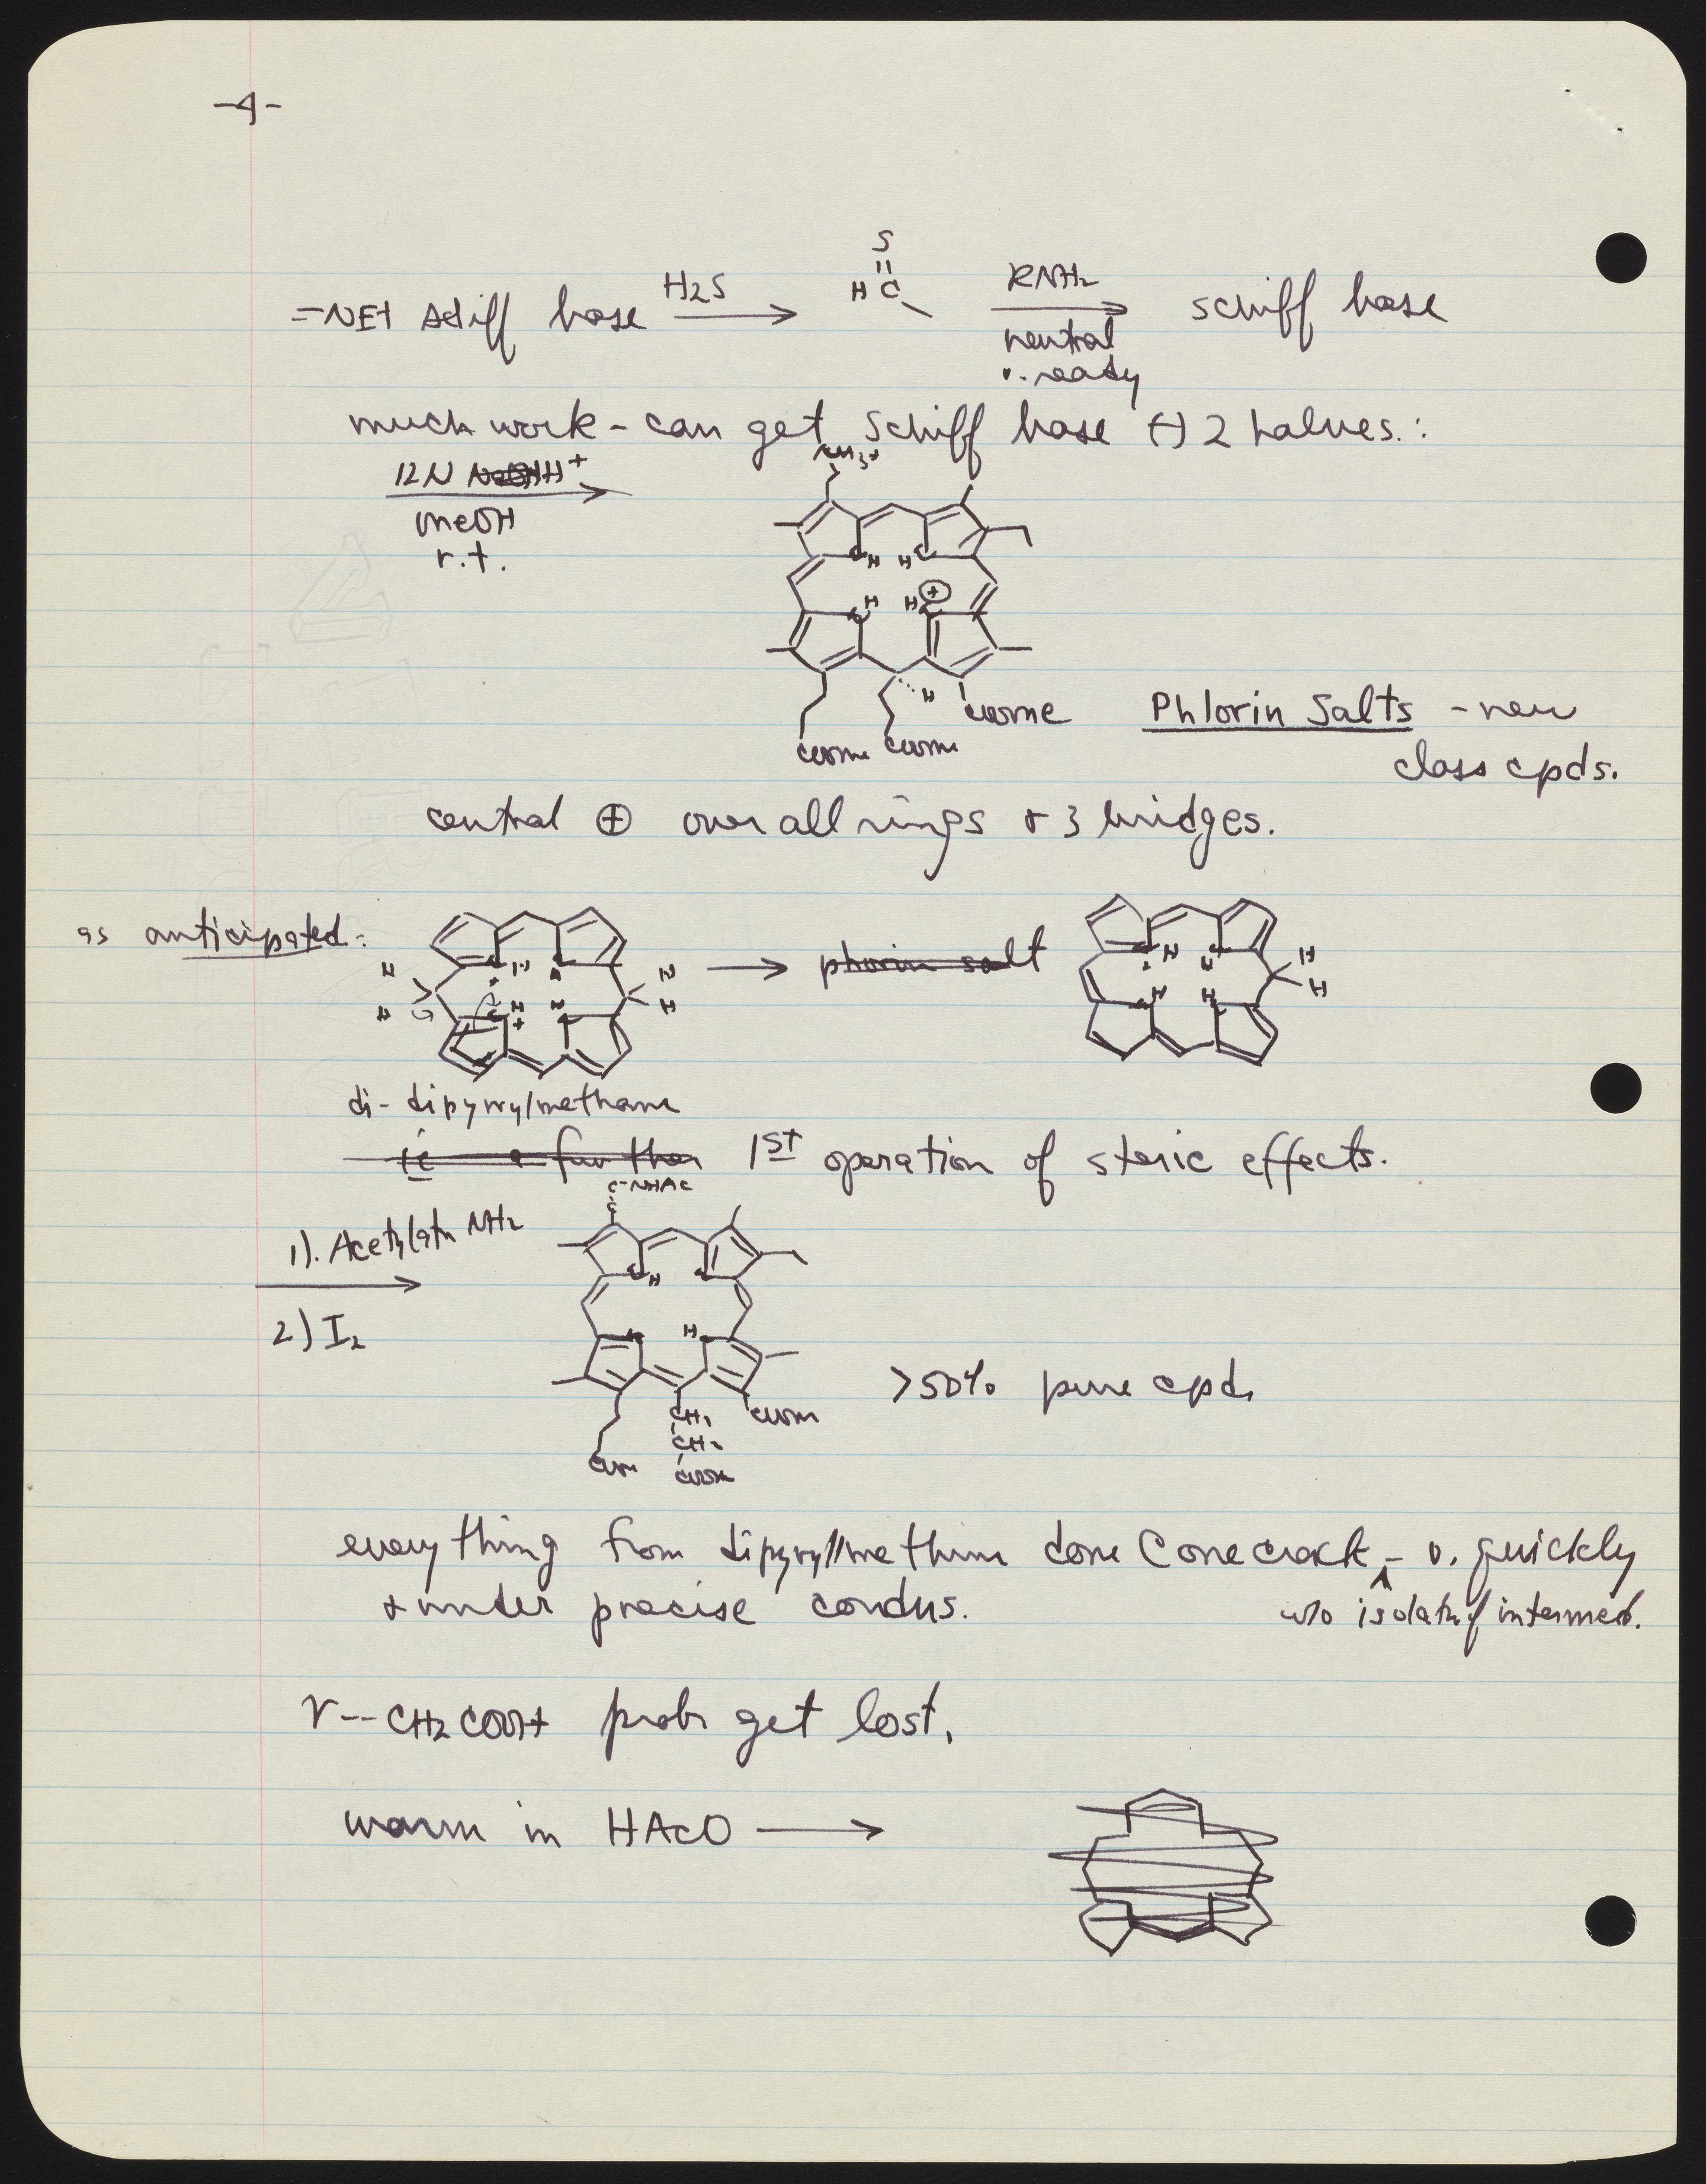 -4-
=NEt schiff base H2S → S
H C RNH2 → schiff base
neutral
v. ready
much work - can get schiff base (-) 2 halves.:
12N H+
MeOH
r.t.
NH3+
H H
H H +
H
COOMe
COOMe COOMe
Phlorin Salts - new
class cpds.
central ⊕ over all rings + 3 bridges.
as anticipated:
H H H H H H H H
+
→ phlorin salt
H H H H H H
di-dipyrrylmethane
ie a further 1st operation of steric effects.
C-NHAc
C
1). Acetylatn NH2
→
2) I2
H
H
>50% pure cpd.
CH2
CH2
COOMe
COOMe
COOMe
everything from dipyrrylmethine done C one crack - v. quickly
w/o isolatn of intermed.
+ under precise condns.
γ--CH2COOH prob get lost.
warm in HAcO →